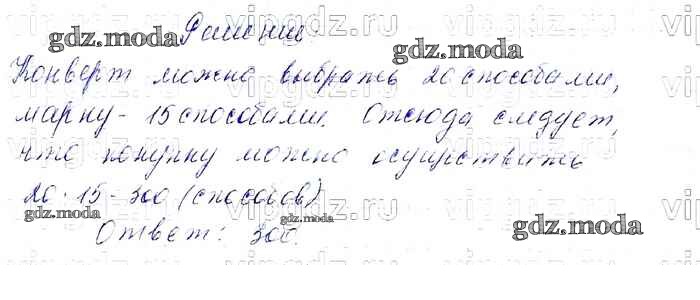 Решение.
Конверт можно выбрать 20 способами,
марку - 15 способами. Отсюда следует,
что покупку можно осуществить
20 · 15 = 300 (способов)
Ответ: 300.
gdz.moda
gdz.moda
gdz.moda
gdz.moda
gdz.moda
vipgdz.ru